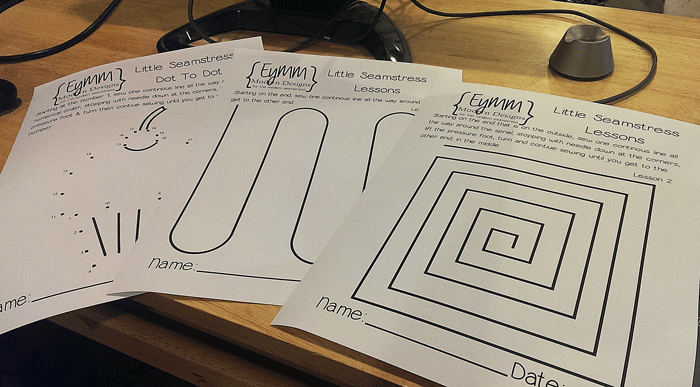 {Eymm}
Modern Designs
for the modern seamstress
Little Seamstress
Dot To Dot
Starting at the number 1, sew one continous line all the way
numerical order, stopping with needle down at the corners,
pressure foot, & turn then continue sewing until you get to
number
Name:
{Eymm}
Modern Designs
for the modern seamstress
Little Seamstress
Lessons
Starting on the end, sew one continous line all the way around
get to the other end
Le
Name:
{Eymm}
Modern Designs
for the modern seamstress
Little Seamstress
Lessons
Starting on the end that is on the outside, sew one continous line all
the way around the spiral, stopping with needle down at the corners,
lift the pressure foot, turn and continue sewing until you get to the
other end, in the middle.
Lesson 2
Name:
Date: